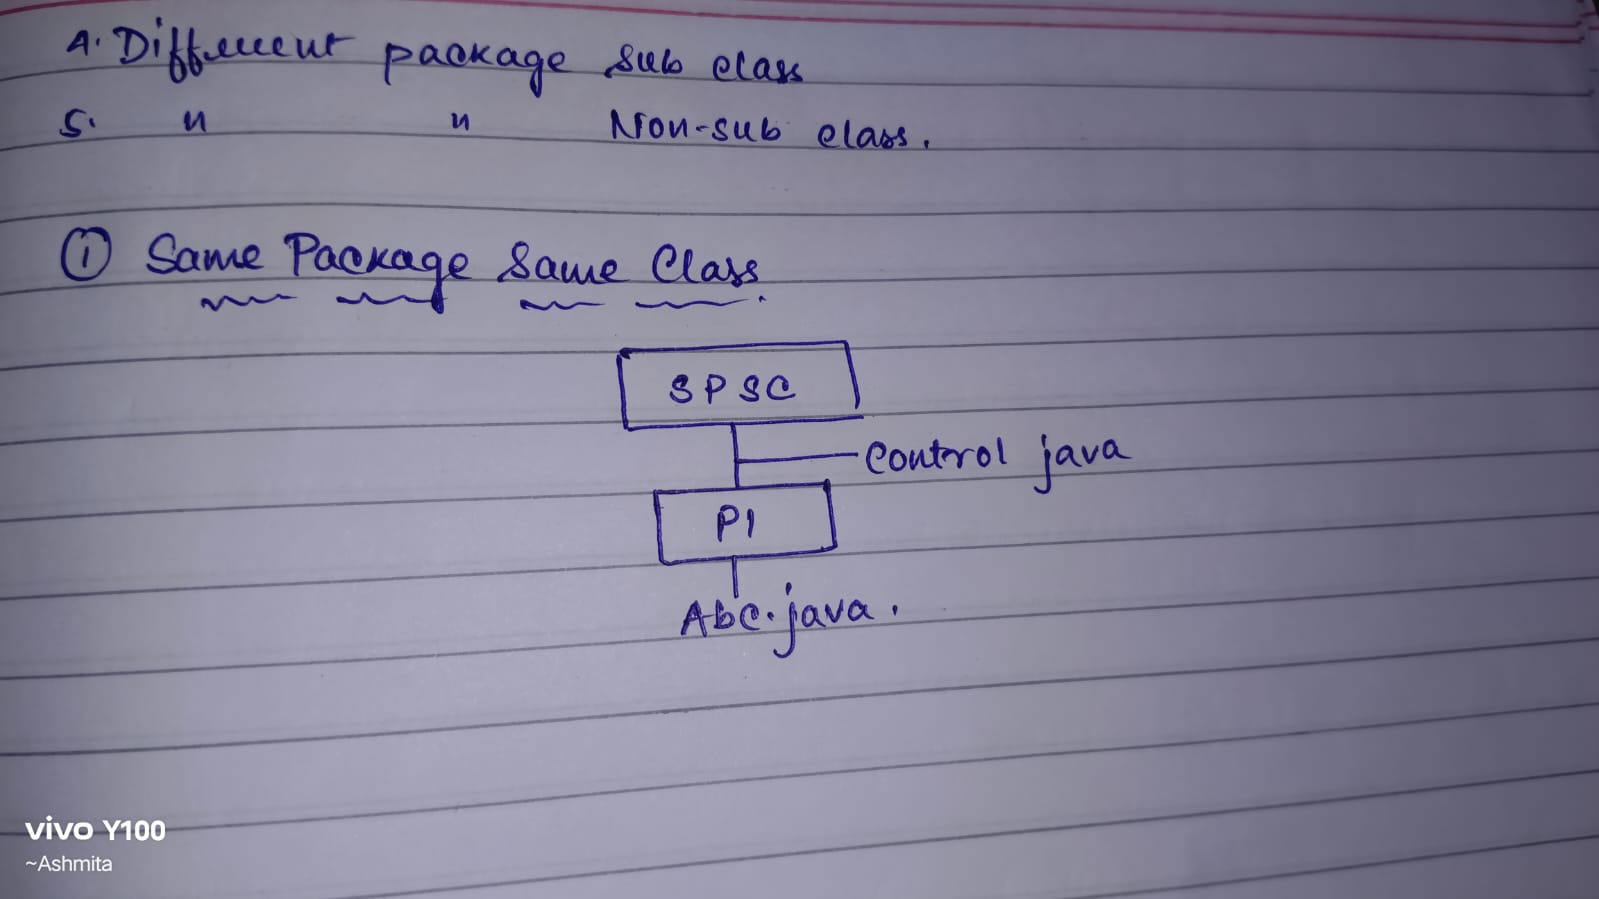 4. Different package sub class
5. " " Non-sub class.
① Same Package Same Class.
SPSC
Control java
P1
Abc.java.
vivo Y100
~Ashmita